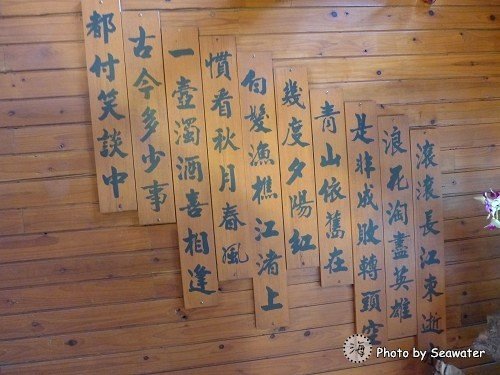 滾滾長江東逝
浪花淘盡英雄
是非成敗轉頭空
青山依舊在
幾度夕陽紅
白髮漁樵江渚上
慣看秋月春風
一壺濁酒喜相逢
古今多少事
都付笑談中
海 Photo by Seawater